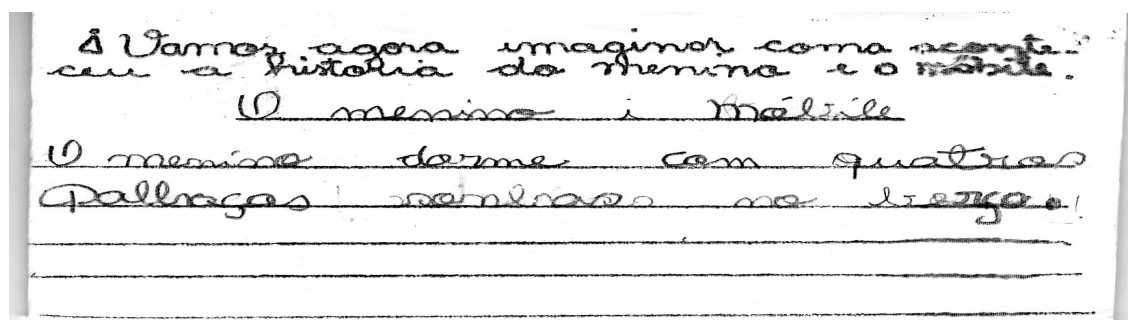 1 Vamos agora imaginar como aconte-
ceu a historia do menino e o móbile.
O menino i Móbile
O menino dorme com quatros
Palhaços no berço.